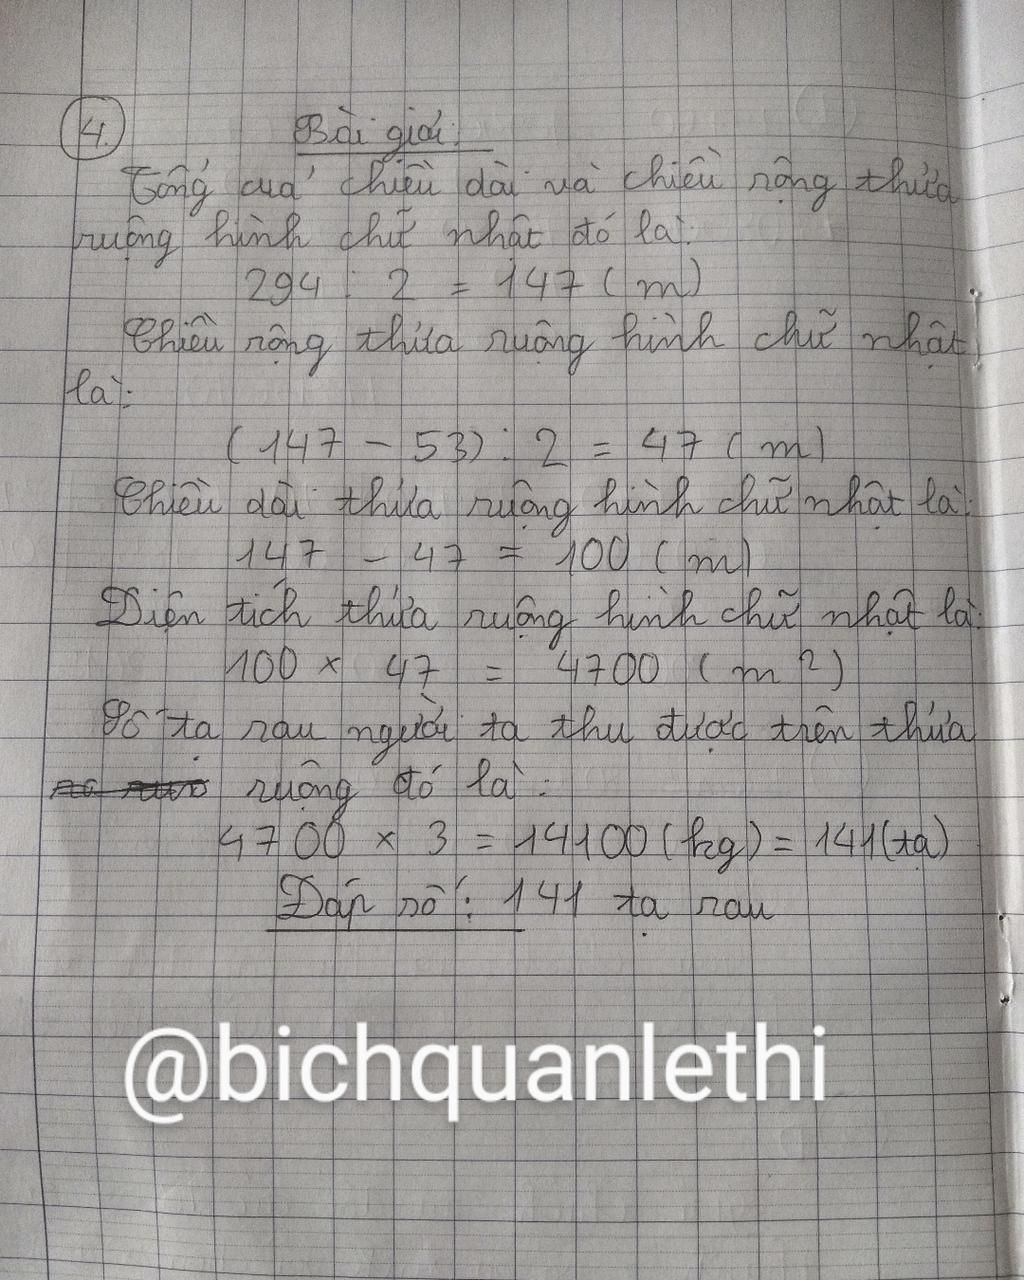 4.
Bài giải:
Tổng của chiều dài và chiều rộng thửa
ruộng hình chữ nhật đó là:
294 : 2 = 147 ( m )
Chiều rộng thửa ruộng hình chữ nhật
là:
( 147 - 53 ) : 2 = 47 ( m )
Chiều dài thửa ruộng hình chữ nhật là:
147 - 47 = 100 ( m )
Diện tích thửa ruộng hình chữ nhật là:
100 × 47 = 4700 ( m² )
Số tạ rau người ta thu được trên thửa
ruộng đó là :
4700 × 3 = 14100 (kg) = 141 (tạ)
Đáp số : 141 tạ rau
@bichquanlethi